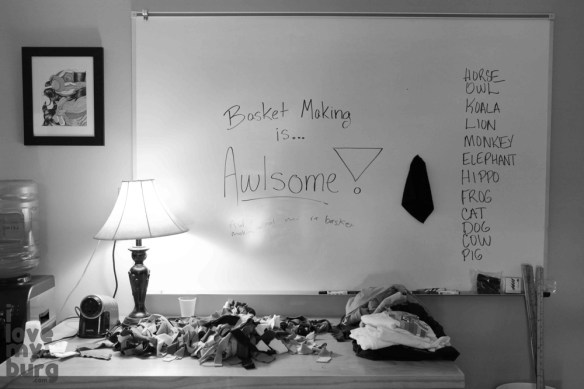 Basket Making
is...
Awlsome!
basket
HORSE
OWL
KOALA
LION
MONKEY
ELEPHANT
HIPPO
FROG
CAT
DOG
COW
PIG
i
love
my
burg